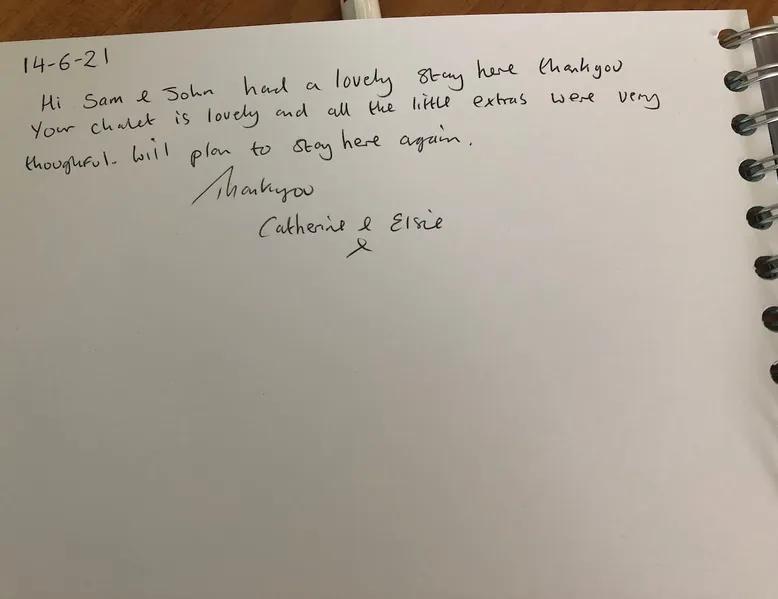 14-6-21
Hi Sam & John had a lovely stay here thankyou
Your chalet is lovely and all the little extras were very
thoughful. Will plan to stay here again.
Thankyou
Catherine & Elsie
x